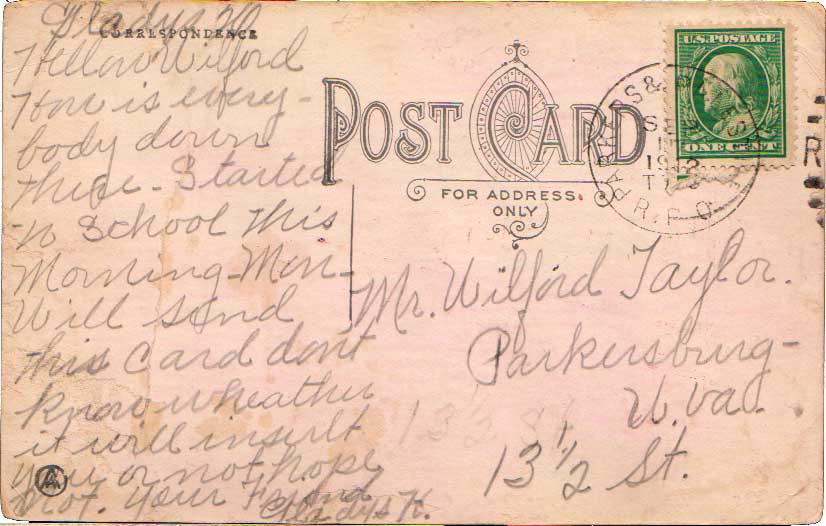 Gladys
CORRESPONDENCE
Hellow Wilford
How is every-
body down
there - Started
to School this
Morning - Mon-
Will send
this card dont
know wheather
it will insult
you or not. hope
not. your Friend
Gladys K.
POST CARD
FOR ADDRESS
ONLY
U.S. POSTAGE
ONE CENT
R.P.O.
R
Mr. Wilford Taylor.
Parkersburg-
W.Va.
13 1/2 St.